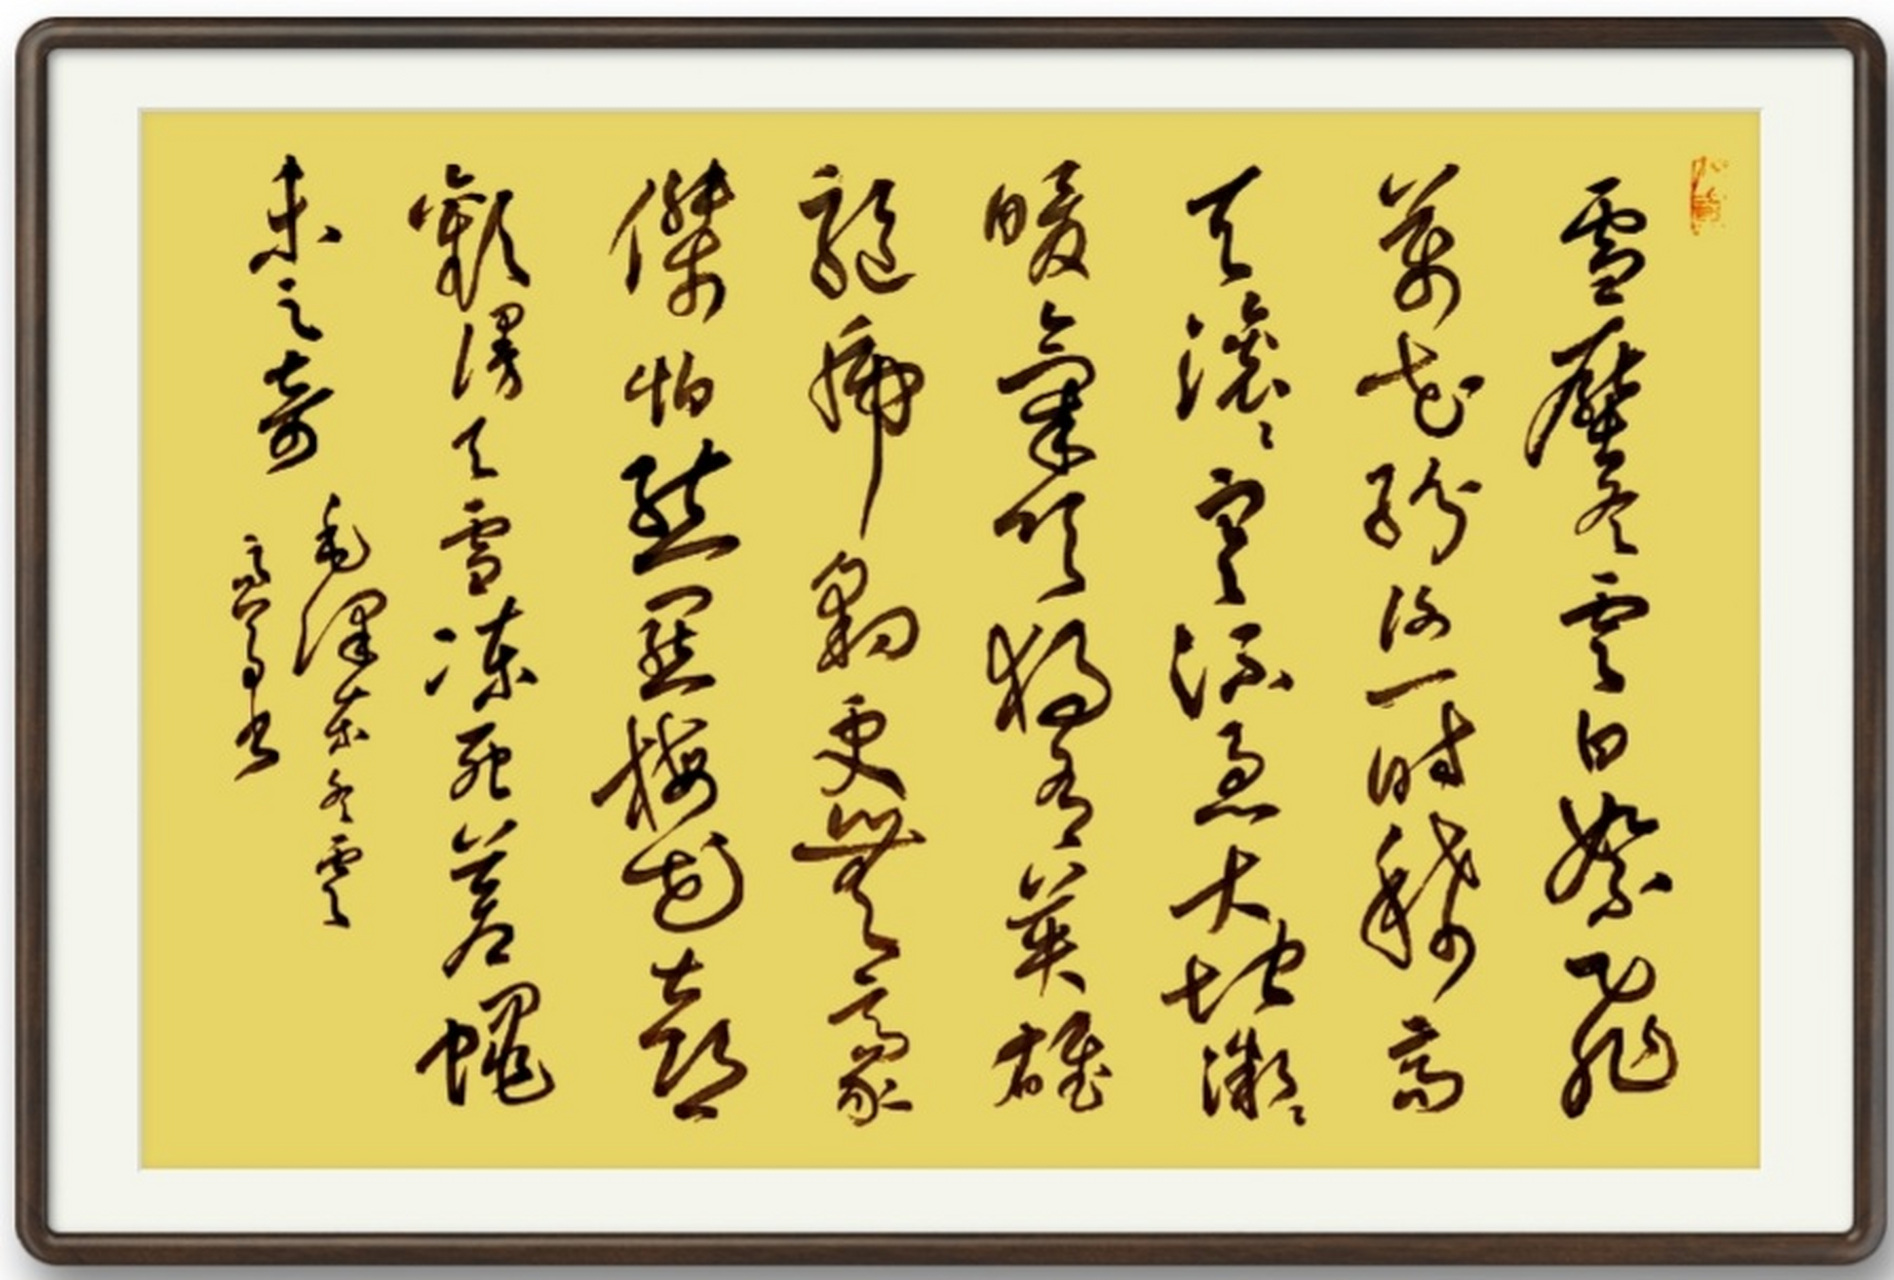 雪壓冬雲白絮飛
萬花紛謝一時稀高
天滾々寒流急大地微々
暖氣吹獨有英雄
驅虎豹更無豪
傑怕熊羆梅花喜
歡漫天雪凍死蒼蠅
未足奇
毛澤東冬雲